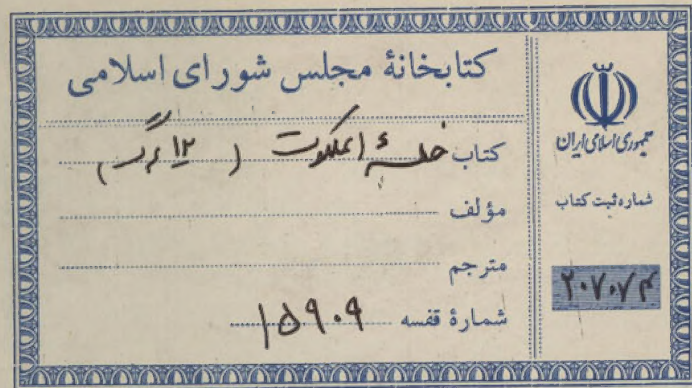 کتابخانهٔ مجلس شورای اسلامی
کتاب خلسهٔ الملکوت ( ۱۲ برگ )
مؤلف
مترجم
شمارهٔ قفسه ۱۵۹۰۹
جمهوری اسلامی ایران
شماره ثبت کتاب
۲۰۷۰۷۴